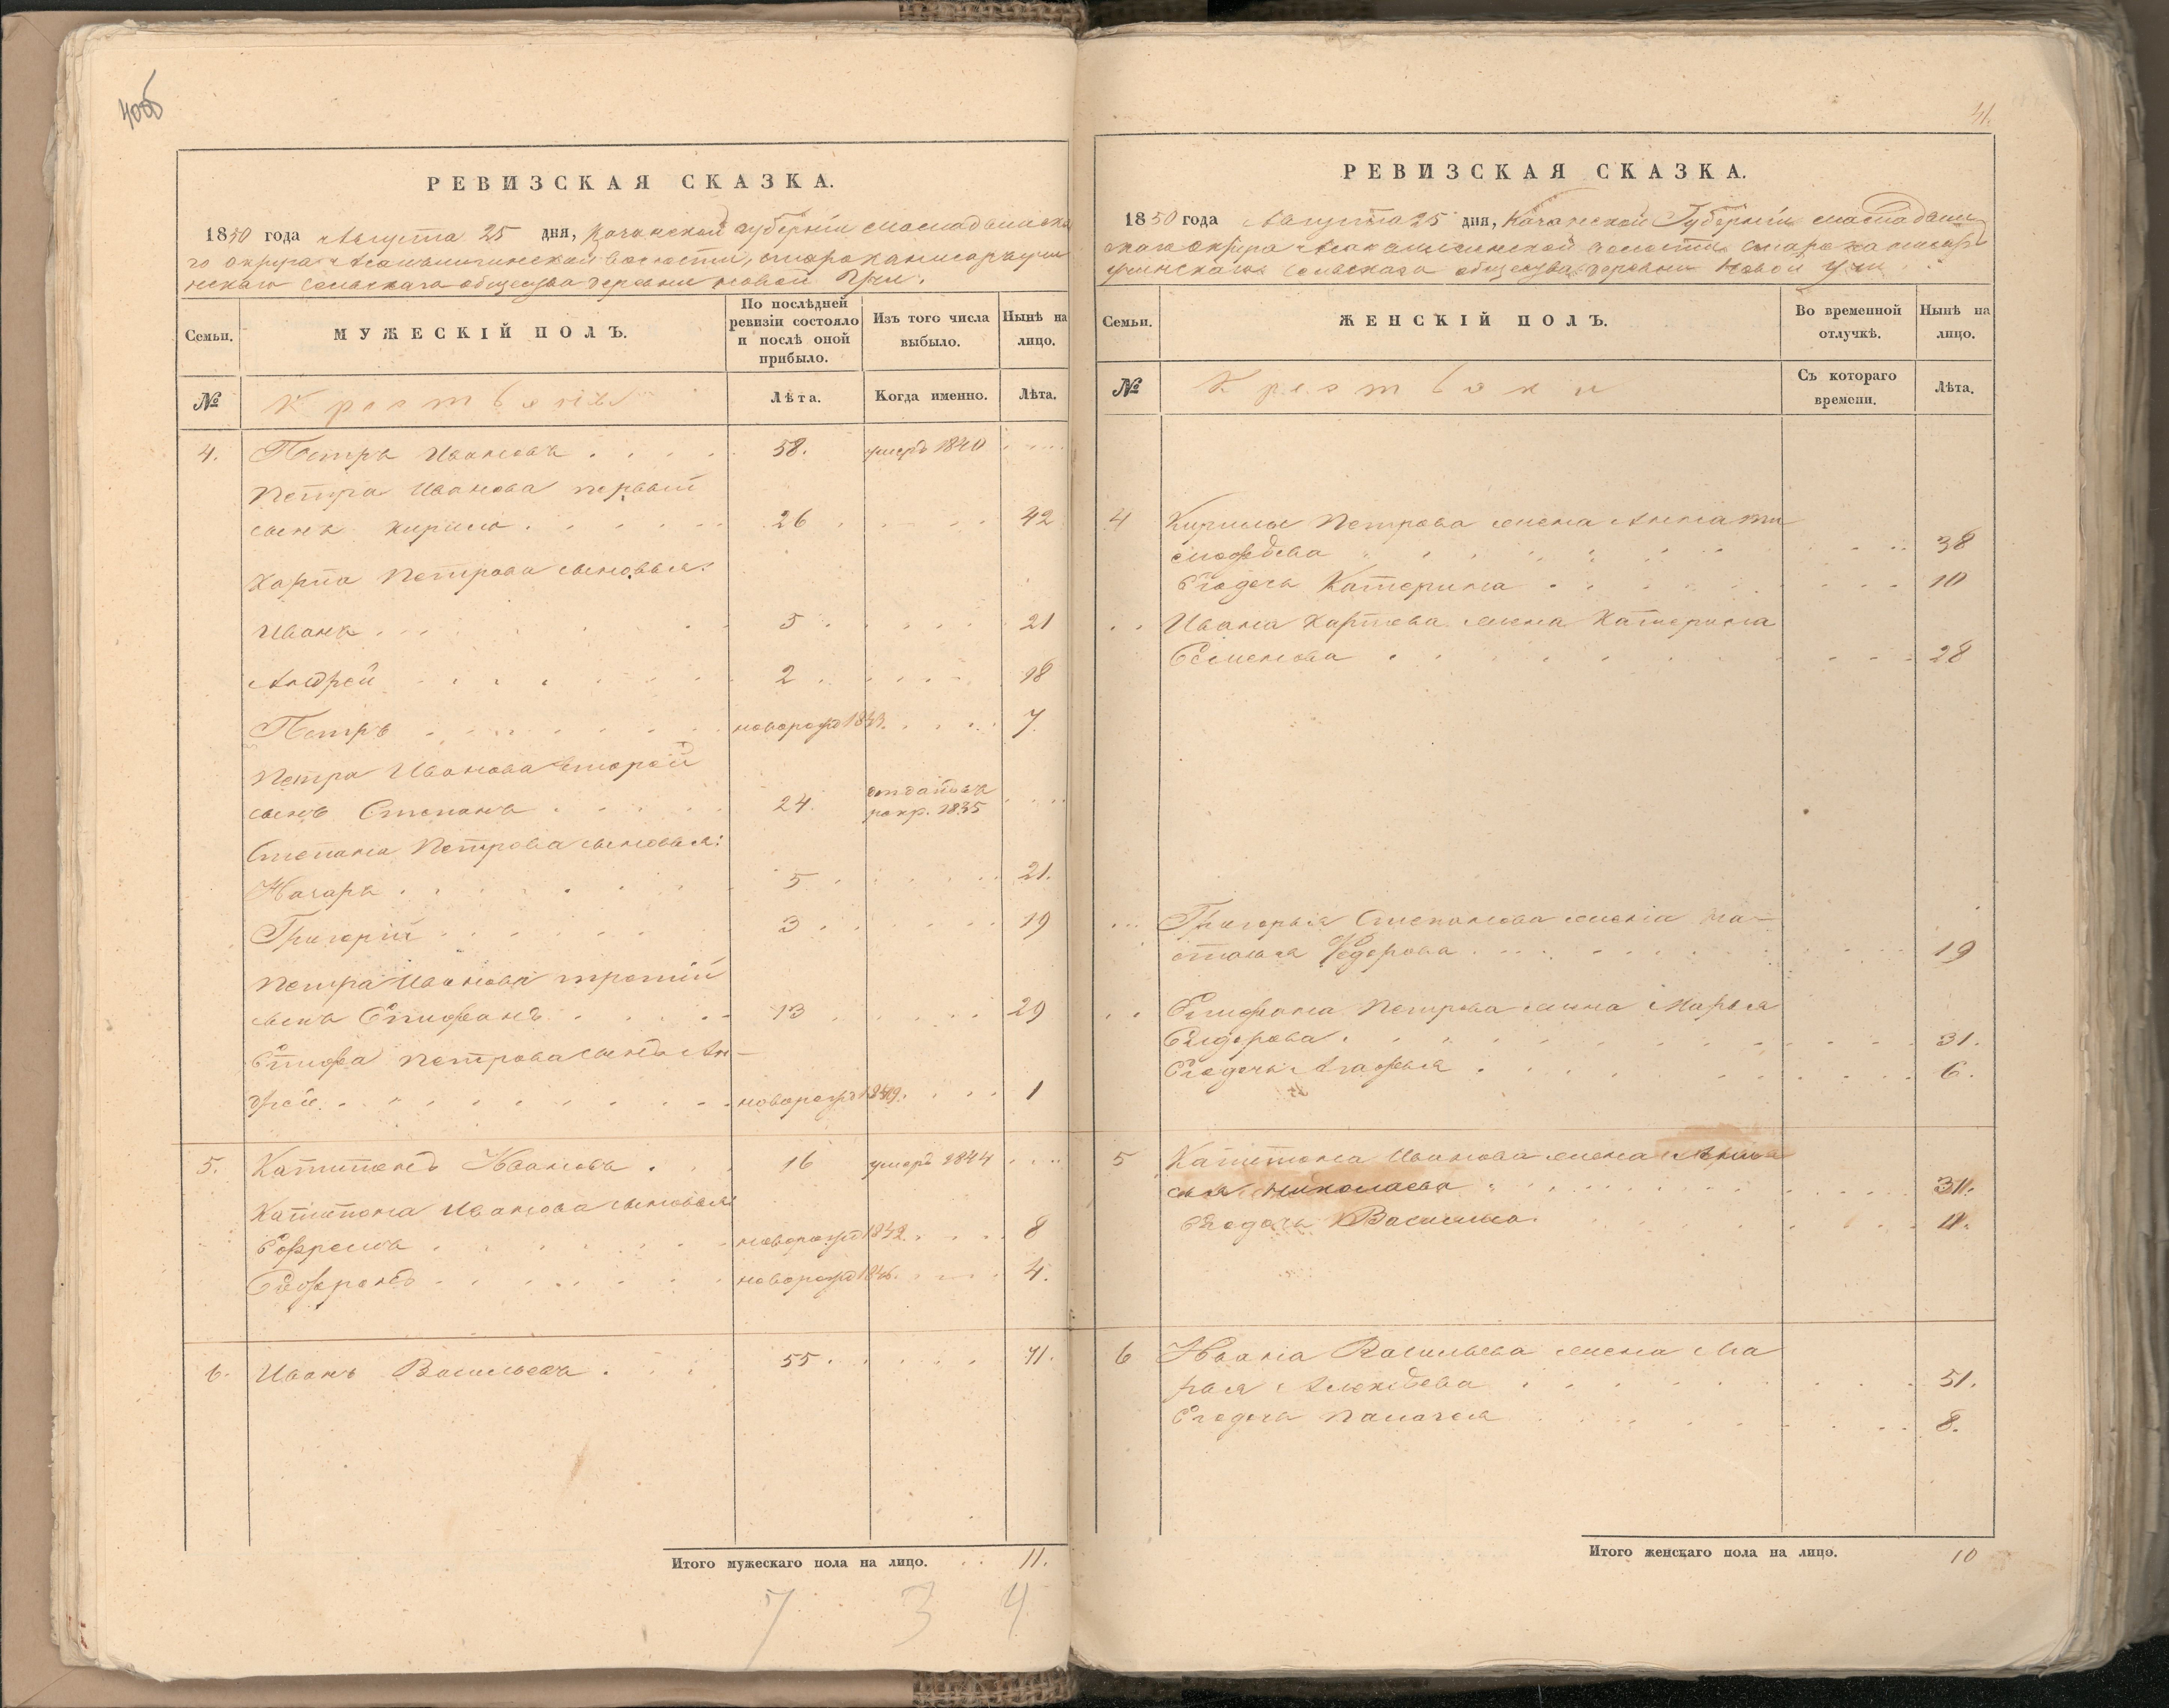 40об
РЕВИЗСКАЯ СКАЗКА.
1850 года Августа 25 дня, Казанской Губернiи Мамадышска
го округа волости,
скаго сельскаго общества деревни Новой Учи.
Семьи.
МУЖЕСКІЙ ПОЛЪ.
По послѣдней ревизіи состояло и послѣ оной прибыло.
Изъ того числа выбыло.
Нынѣ на лицо.
№
Крестьяне
Лѣта.
Когда именно.
Лѣта.
4. Петръ Ивановъ . . . . 58. умеръ 1840 . . . .
Петра Иванова первый
сынъ Кирило . . . . . 26 . . . . . 42
Карпа Петрова сыновья:
Иванъ . . . . . 5 . . . . . 21
Андрей . . . . . 2 . . . . . 18
Петръ . . . . . новорожд 1843. . . . . 7
Петра Иванова второй
сынъ Степанъ . . . . . 24. отданъ въ
рекр. 1835 . . . .
Степана Петрова сыновья:
Назаръ . . . . . 5 . . . . . 21.
Григорій . . . . . 3 . . . . . 19
Петра Иванова третій
сынъ Епифанъ . . . . . 13 . . . . . 29
Епифа Петрова сынъ Ан-
дрей . . . . . новорожд 1849. . . . . 1
5. Капитонъ Ивановъ . . . 16 умеръ 1844 . . . .
Капитона Иванова сыновья:
Ефремъ . . . . . новорожд 1842. . . . . 8
. . . . . новорожд 1846. . . . . 4.
6. Иванъ Васильевъ . . . 55 . . . . . 71.
Итого мужескаго пола на лицо. . . 11.
7 3 4
41.
РЕВИЗСКАЯ СКАЗКА.
1850 года Августа 25 дня, Казанской Губернiи Мамадыш
скаго округа волости
сельскаго общества деревни Новой Учи.
Семьи.
ЖЕНСКІЙ ПОЛЪ.
Во временной отлучкѣ.
Нынѣ на лицо.
№
Крестьянки
Съ котораго времени.
Лѣта.
4 Кирилы Петрова жена Анна Ти
мофѣева . . . . . 38
Его дочь Катерина . . . . . 10
. . Ивана Карпова жена Катерина
Семенова . . . . . 28
. . . Григорья Степанова жена На-
талья Федорова . . . . . 19
. . Епифана Петрова жена Марья
Сидорова . . . . . 31.
Его дочь Агафья . . . . . 6.
5 Капитона Иванова жена
Николаева . . . . . 31.
Его дочь Василиса. . . . . 11.
6 Ивана Васильева жена Ма
рья Алексѣева . . . . . 51.
Его дочь Палагея . . . . . 8.
Итого женскаго пола на лицо. 10